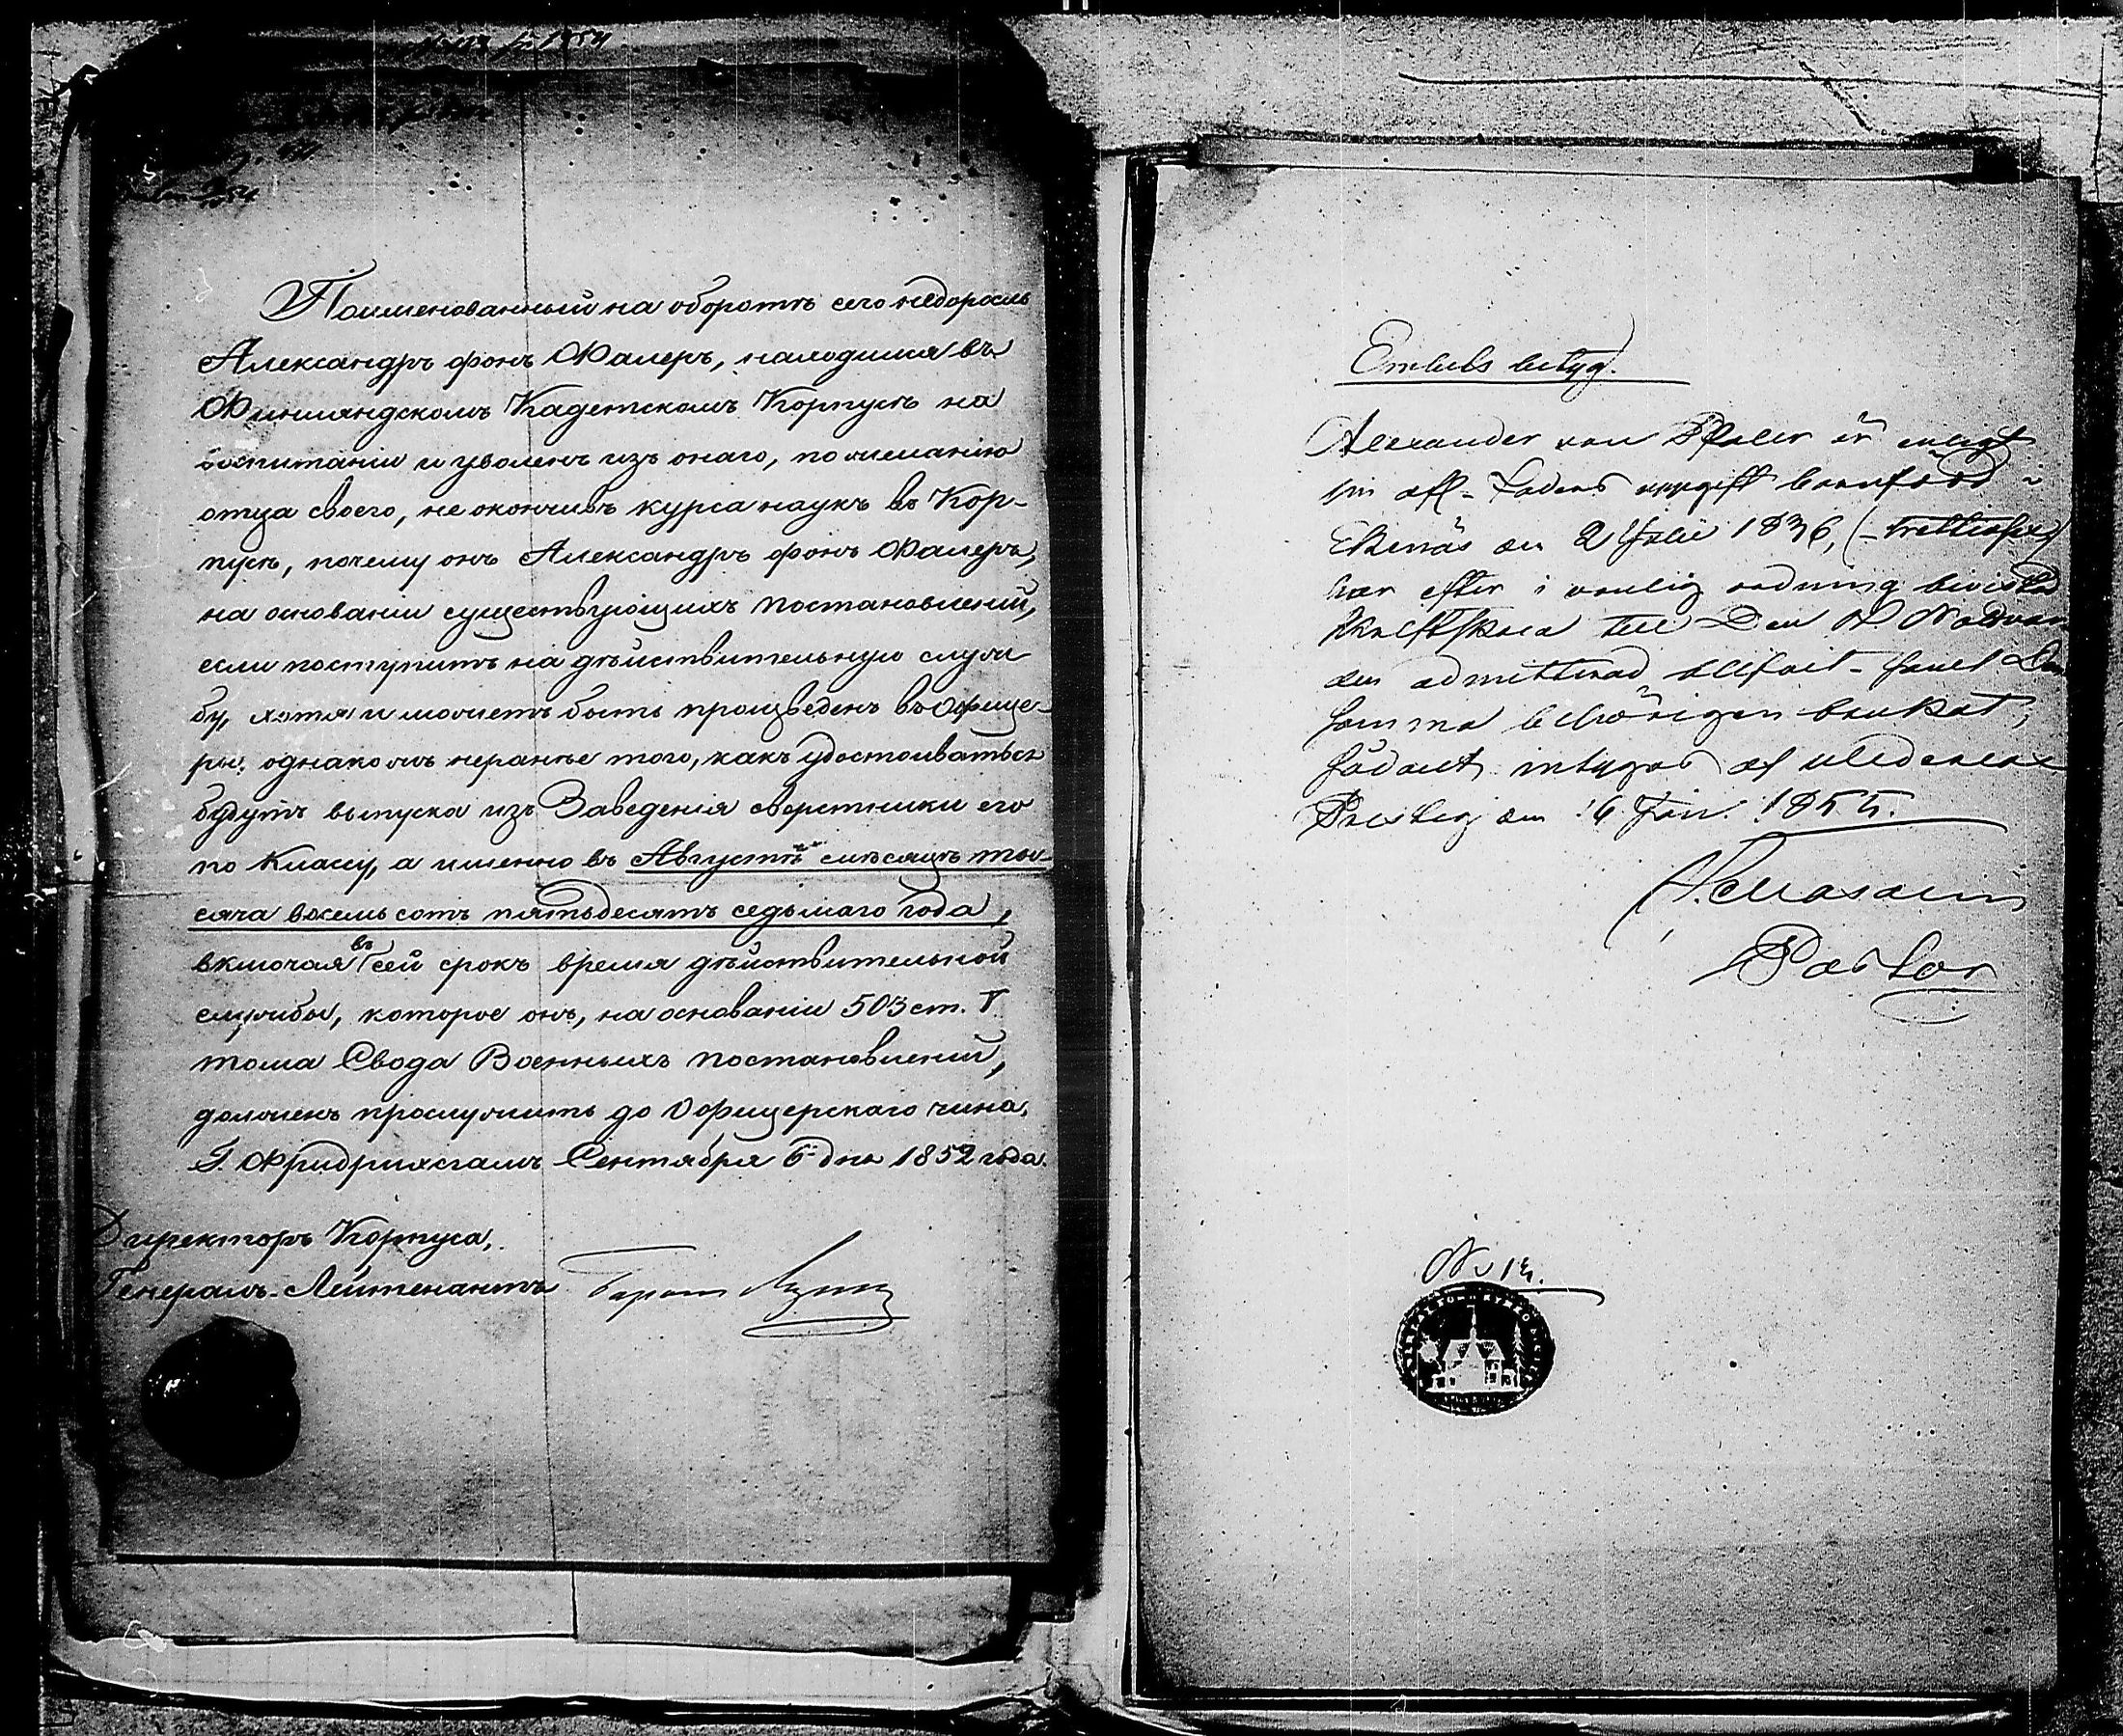 Поименованный на оборотѣ сего недоросль
Александръ фонъ Фалеръ, находился въ
Финляндскомъ Кадетскомъ Корпусѣ на
воспитаніи и уволенъ изъ онаго, по желанію
отца своего, не окончивъ курса наукъ въ Кор-
пусѣ, почему онъ Александръ фонъ Фалеръ,
на основаніи существующихъ постановленій,
если поступитъ на дѣйствительную служ-
бу, хотя и можетъ быть произведенъ въ Офице-
ры, однакожъ неранѣе того, какъ удостоиваться
будутъ выпуска изъ Заведенія сверстники его
по Классу, а именно въ Августѣ мѣсяцѣ ты-
сяча восемь сотъ пятьдесятъ седьмаго года,
включая въ сей срокъ время дѣйствительной
службы, которое онъ, на основаніи 503 ст. V.
тома Свода Военныхъ постановленій,
долженъ прослужить до Офицерскаго чина.
Г. Фридрихсгамъ Сентября 6 дня 1852 года.
Директоръ Корпуса,
Генералъ-Лейтенантъ Баронъ
Embets betyg.
Alexander von Pfaler är enligt
sin afl. Faders uppgift barnfödd i
Ekenäs den 2 Julii 1836, (-trettiosex)
har efter i vanlig ordning bevistad
Skriftskola till Den H. Nattvar
den admitterad blifvit - samt Den
samma behörigen brukat,
sådant intygas af
den 16 Jan. 1855.
Pastor
No 14.